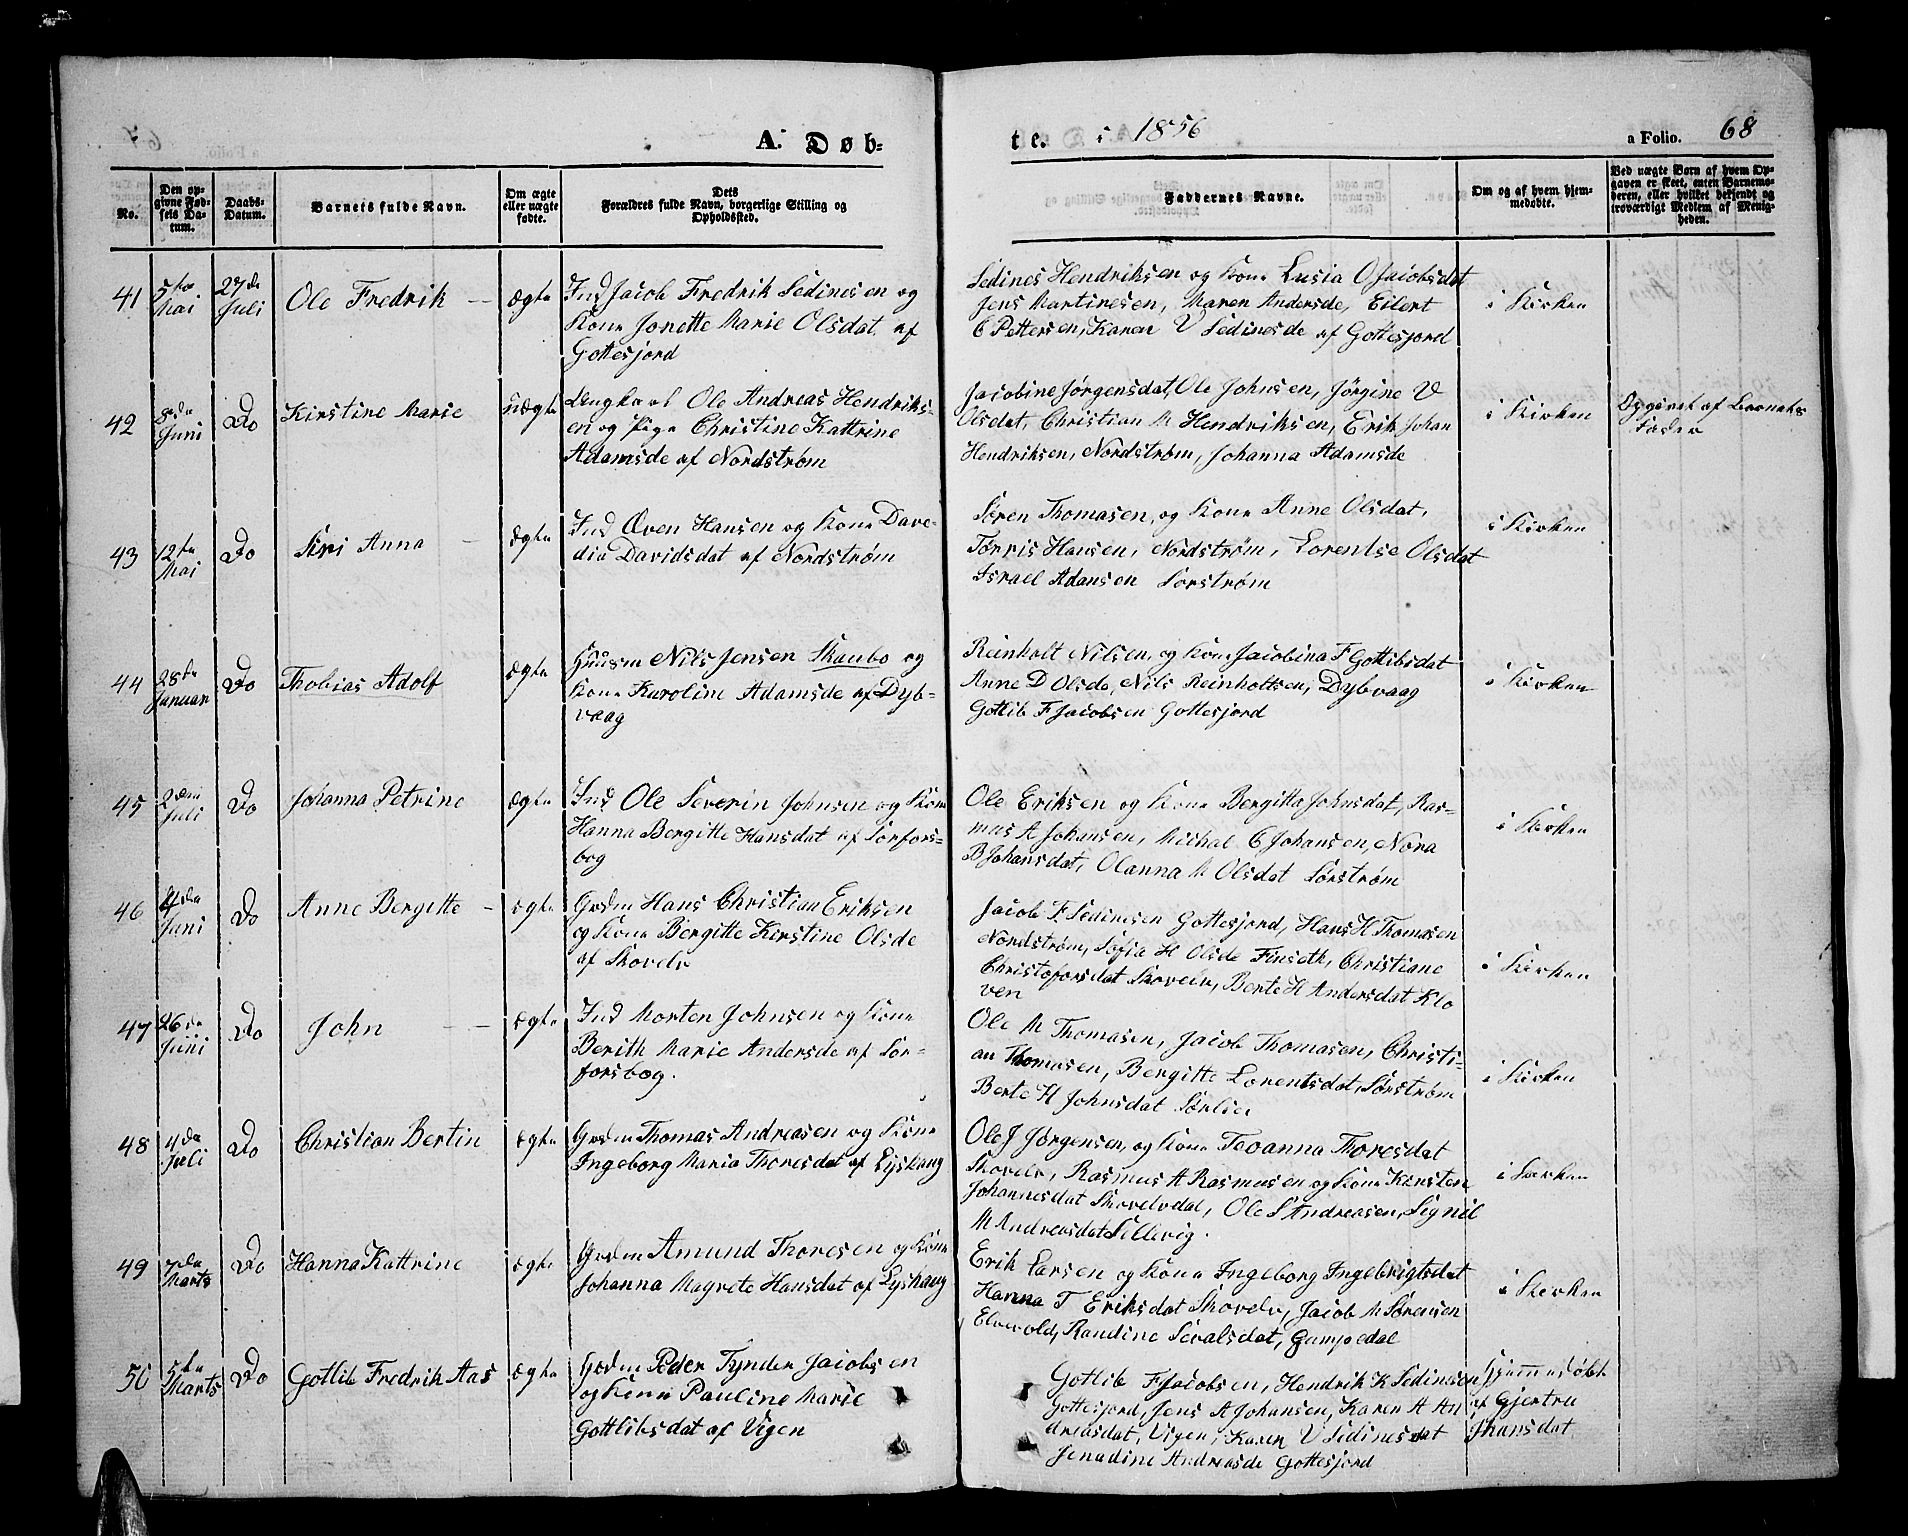 A. Døb-
te. i 1856
a Folio. 68
No.
Den op-
givne Fød-
sels Da-
tum.
Daabs-
Datum.
Barnets fulde Navn.
Om ægte
eller uægte
fødte.
Dets
Forældres fulde Navn, borgerlige Stilling og
Opholdssted.
Faddernes Navne.
Om og af hvem hjem-
medøbte.
Ved uægte Børn af hvem Op-
gaven er skeet, enten Barnemo-
deren, eller hvilket bekjendt og
troværdigt Medlem af Menig-
heden.
41
5te
Mai
27de
Juli
Ole Fredrik
ægte
Ind Jacob Fredrik Sedinesen og
Kone Jonette Marie Olsdat af
Gottesjord
Sedines Hendriksen og Kone Lusia O Jacobsdat
Jens Martinesen, Maren Andersde, Eilert
C Pettersen, Karen V Sedinesde af Gottesjord
i Kirken
42
8de
Juni
Do
Kirstine Marie
uægte
Ungkarl Ole Andreas Hendriks-
en og Pige Christine Kattrine
Adamsde af Nordstrøm
Jacobine Jørgensdat, Ole Johnsen, Jörgine V
Olsdat, Christian M Hendriksen, Erik Johan
Hendriksen, Nordstrøm, Johanna Adamsde
i Kirken
Opgivet af Barnets
Fader
43
12te
Mai
Do
Siri Anna
ægte
Ind Even Hansen og Kone Dave-
dia Davidsdat af Nordstrøm
Søren Thomasen, og Kone Anne Olsdat,
Tørris Hansen, Nordstrøm, Lorentse Olsdat
Israel Adamsen Sørstrøm
i Kirken
44
28de
Januar
Do
Thobias Adolf
ægte
Huusm Nils Jensen Skaubo og
Kone Karoline Adamsde af Dyb-
vaag
Reinholt Nilsen, og Kone Jacobina F Gottlibsdat
Anne D Olsde, Nils Reinholtsen, Dybvaag
Gotlib F Jacobsen Gottesjord
i Kirken
45
2den
Juli
Do
Johanna Petrine
ægte
Ind Ole Severin Johnsen og Kone
Hanna Bergitte Hansdat af Sørfors-
bog
Ole Eriksen og Kone Bergitta Johnsdat, Ras-
mus A Johansen, Michal C Johansen, Nora
B Johansdat, Olanna M Olsdat Sørstrøm
i Kirken
46
4de
Juni
Do
Anne Bergitte
ægte
Grdm Hans Christian Eriksen
og Kone Bergitte Kirstine Olsde
af Skovelv
Jacob F Sedinesen Gottesjord, Hans H Thomasen
Nordstrøm, Sofia H Olsde Finseth, Christiane
Christofersdat Skovelv, Berte H Andersdat Klo
ven
i Kirken
47
26de
Juni
Do
John
ægte
Ind Morten Johnsen og Kone
Berith Marie Andersde af Sør-
forsbog.
Ole M Thomasen, Jacob Thomasen, Christi-
an Thomasen, Bergitte Lorentsdat, Sørstrøm
Berte H Johnsdat Sørlier
i Kirken
48
4de
Juli
Do
Christian Bertin
ægte
Grdm Thomas Andreasen og Kone
Ingeborg Maria Thoresdat af Lyshaug
Ole J Jørgensen, og Kone Teoanna Thoresdat
Skovelv, Rasmus A Rasmusen og Kone Kirstene
Johannesdat Skovelvdal, Ole S Andreasen, Signil
M Andreasdat Sillevig.
i Kirken
49
7de
Marts
Do
Hanna Kattrine
ægte
Grdm Amund Thoresen og Kone
Johanna Magrete Hansdat af Lyshaug
Erik Larsen og Kone Ingeborg Ingebrigtsdat
Hanna T Eriksdat Skovelv, Jacob M Sørensen
Elvevold, Randine Sivalsdat, Gumpedal
i Kirken
50
5te
Marts
Do
Gotlib Fredrik Aas
ægte
Grdm Peder Tynder Jacobsen
og Kone Pauline Marie
Gottlibsdat af Vigen
Gotlib F Jacobsen, Hendrik K Sedinesen
Gottesjord, Jens A Johansen, Karen A An
dreasdat, Vigen, Karen V Sedinesdat
Jenadine Andreasde Gottesjord
Hjemmedøbt
af Gjertru
Hansdat